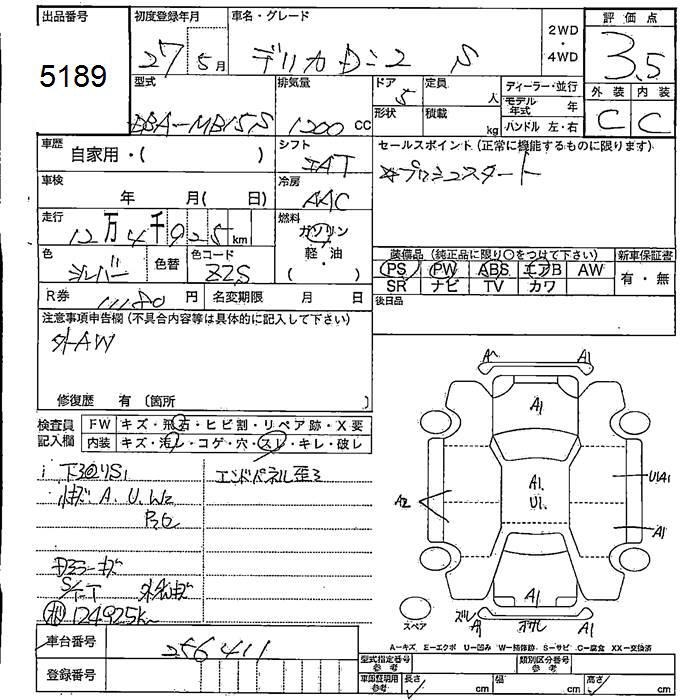 出品番号
5189
初度登録年月
27 5月
車名・グレード
デリカD:2 S
2WD
・
4WD
評価点
3.5
外装 内装
C C
型式
DBA-MB15S
排気量
1200 cc
ドア
5
定員
人
形状
積載
kg
ディーラー・並行
モデル年式 年
ハンドル 左・右
車歴
自家用・( )
シフト
IAT
冷房
AAC
車検
年 月( 日)
走行
12万4千925km
燃料
ガソリン
軽・油
( )
色
シルバー
色替
色コード
ZZS
R券
11180円
名変期限 月 日
セールスポイント (正常に機能するものに限ります)
☆プッシュスタート
装備品 (純正品に限り○をつけて下さい)
新車保証書
PS PW ABS エアB AW
SR ナビ TV カワ
有・無
後日品
注意事項申告欄 (不具合内容等は具体的に記入して下さい)
外AW
修復歴 有 〔箇所 〕
検査員
記入欄
FW キズ・飛石・ヒビ割・リペア跡・X要
内装 キズ・汚レ・コゲ・穴・スレ・キレ・破レ
下回りS1
エンドパネル歪3
A. U. W2
P.G
ドアミラーキズ
S/T-T
124925k
車台番号
256411
登録番号
A1
A1
A1
U1
A2
U1A1
A1
A1
ズレ
A1
A1
スペア
A-キズ E-エクボ U-凹み W-補修跡 S-サビ C-腐食 XX-交換済
型式指定番号
参考
類別区分番号
参考
車庫証明用
参考
長さ cm
幅 cm
高さ cm